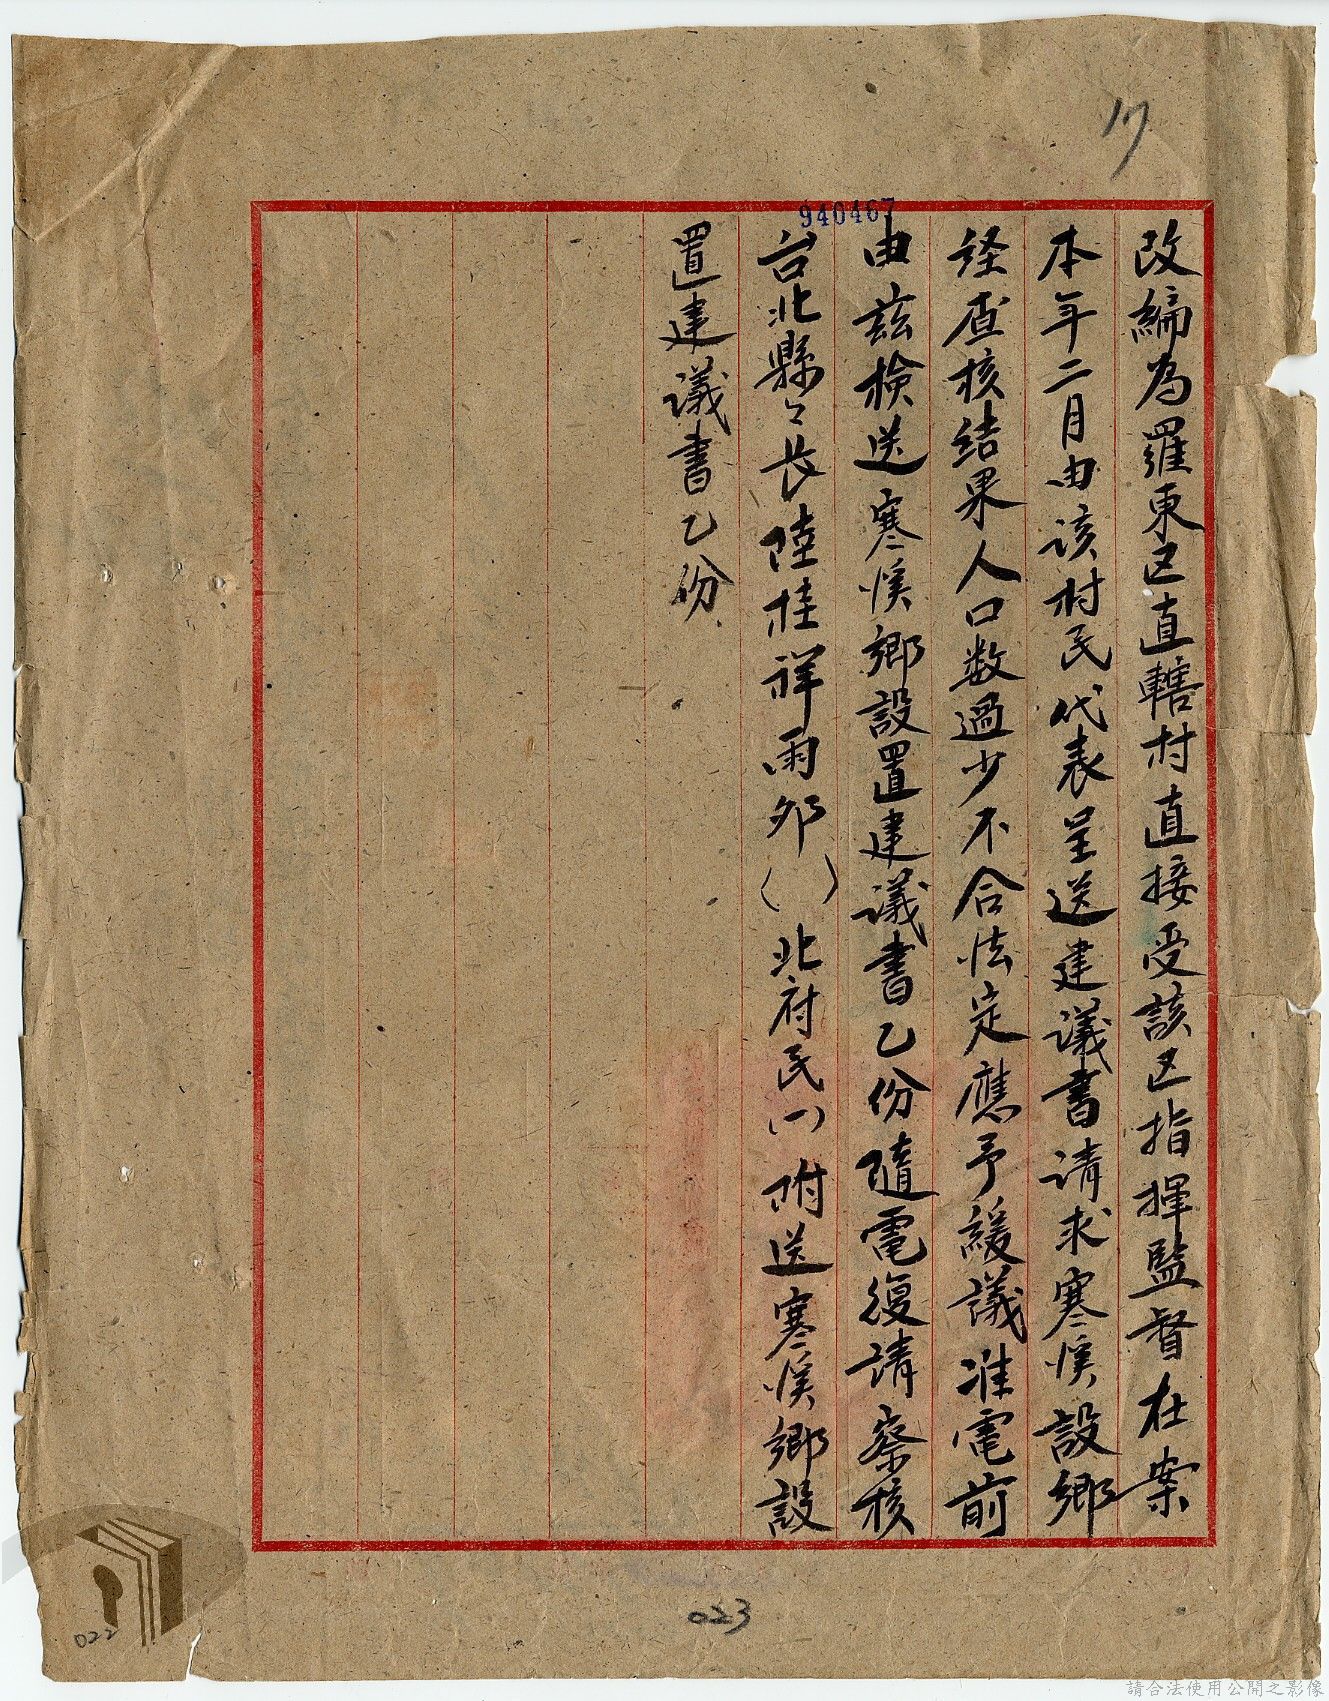 17
940467
改編為羅東区直轄村直接受該区指揮監督在案
本年二月由该村民代表呈送建議書请求寒溪設鄉
経查核结果人口数過少不合法定應予緩議准電前
由兹檢送寒溪鄉設置建議書乙份隨電復请察核
台北縣々長陸桂祥雨卯（ ）北府民（一）附送寒溪鄉設
置建議書乙份
023
022
請合法使用公開之影像